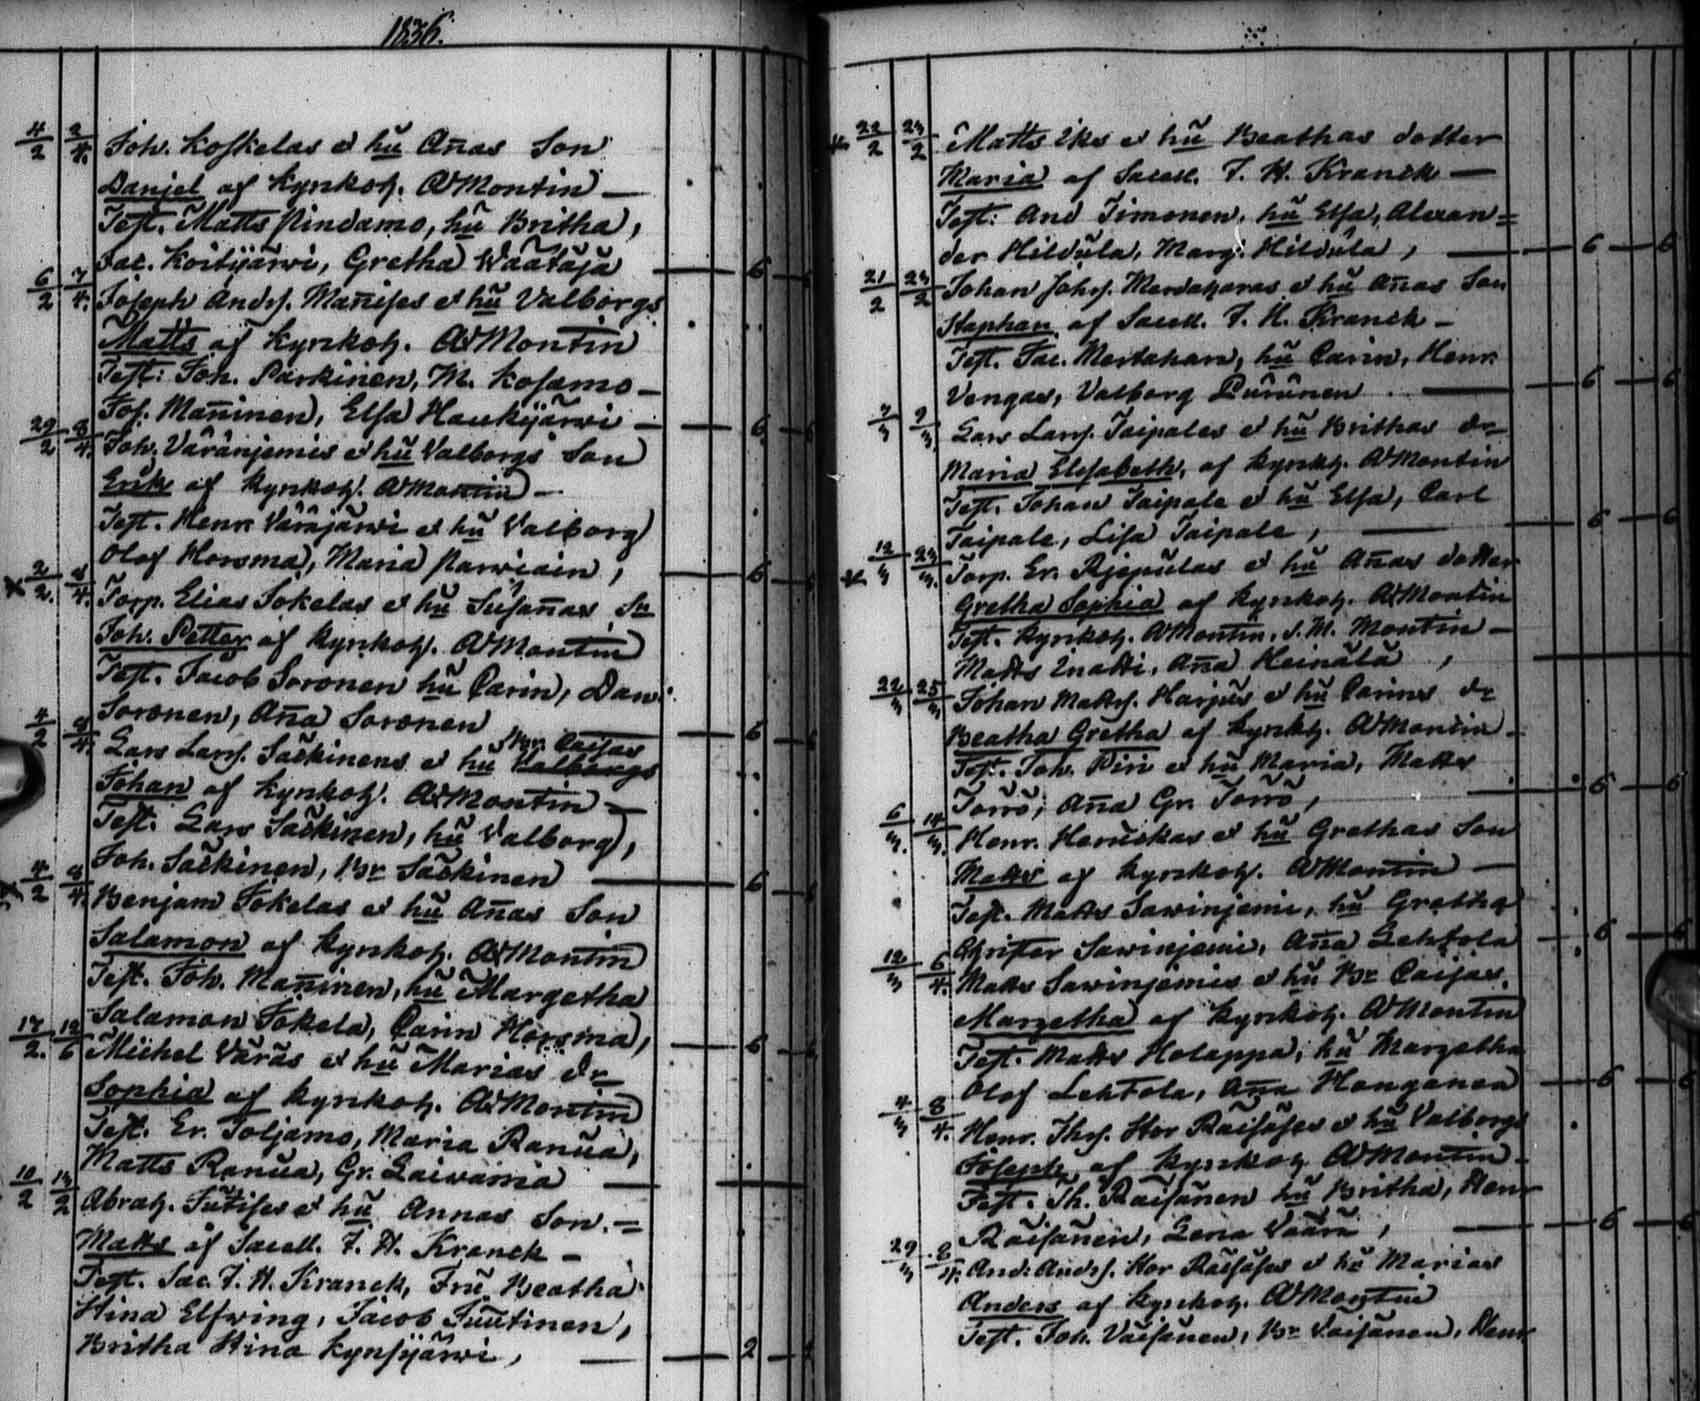 1836.
4/2 2/4. Joh. Koskelas et hu Añas Son
Danjel af Kyrkoh. A Montin —
Test. Matts Pindamo, hu Britha,
Jac. Koitijärwi, Gretha Wäätäjä — 6
6/2 7/4. Joseph Andrs. Mañises et hu Valborgs
Matts af Kyrkoh. A Montin
Test: Joh. Parkinen, M. Kosamo —
Jos. Mañinen, Elsa Haukijärwi — 6
29/2 8/4. Joh. Väränjemis et hu Valborgs Son
Erik af Kyrkoh. A Montin —
Test. Henr. Väräjärwi et hu Valborg
Olof Horsma, Maria Parwiain, — 6
2/2. 8/4. Torp. Elias Jokelas et hu Susañas Sn
Joh. Petter af Kyrkoh. A Montin
Test. Jacob Soronen hu Carin, Dan:
Soronen, Aña Soronen — 6
4/2 8/4. Lars Lars. Säckinens et hu Valborgs Br. Caisas
Johan af Kyrkoh. A Montin —
Test. Lars Säckinen, hu Valborg,
Joh. Säckinen, Br Säckinen — 6
4/2 8/4. Benjam Jokelas et hu Añas Son
Salamon af Kyrkoh. A Montin
Test. Joh. Mañinen, hu Margetha
Salamon Jokela, Carin Horsma, — 6
17/2. 12/6 Michel Väräs et hu Marias dr
Sophia af Kyrkoh. A Montin
Test. Er. Toljamo, Maria Ranua,
Matts Ranua, Gr. Laiwama —
10/2 13/2 Abrah. Jutises et hu Annas Son. =
Matts af Sacell. J. H. Kranck —
Test. Sac. J. H. Kranck, Fru Beatha
Stina Elfwing, Jacob Juutinen,
Britha Stina Kynsijärwi, — 2
22/2 23/2 Matts Ikes et hu Beathas dotter
Maria af Sacell. J. H. Kranck —
Test: And Simonen, hu Elsa, Alexan=
der Hildula, Marg. Hildula, — 6
21/2 23/2 Johan Johs. et hu Añas Son
Staphan af Sacell. J. H. Kranck —
Test. Jac. hu Carin, Henr.
Vengas, Valborg Purunen — 6
7/3 9/3 Lars Lars. Taipales et hu Brithas dr
Maria Elisabeth, af Kyrkh. A Montin
Test. Johan Taipale et hu Elsa, Carl
Taipale, Lisa Taipale, — 6
12/3 23/3. Torp. Er. et hu Añas dotter
Gretha Sophia af Kyrkoh. A Montin
Test. Kyrkoh. A Montin, S. M. Montin —
Matts Inatti, Aña Heinälä, —
22/3 25/3 Johan Matts. Harjus et hu Carins dr
Beatha Gretha af Kyrkh. A Montin
Test. Joh. Piri et hu Maria, Matts
Torrö, Aña Gr. Torrö, — 6
6/3. 14/3. Henr. Heruskas et hu Grethas Son
Matts af Kyrkoh. A Montin —
Test. Matts Sawinjemi, hu Gretha
Christer Sawinjemi, Aña Lehtola — 6
12/3 6/4. Matts Sawinjemis et hu Br Caijas
Margetha af Kyrkoh. A Montin
Test. Matts Holappa, hu Margetha
Olof Lehtola, Aña Honganen — 6
4/3 8/4. Henr. Thrs. Stor Räisäses et hu Valborgs
Joseph af Kyrkoh A Montin —
Test. Th. Räisänen hu Britha, Henr
Räisänen, Lena Vaara, — 6
29/3 8/4. And: Andrs. Stor Räisäses et hu Marias
Anders af Kyrkoh. A Montin
Test. Joh. Väisänen, Br Väisänen, Henr